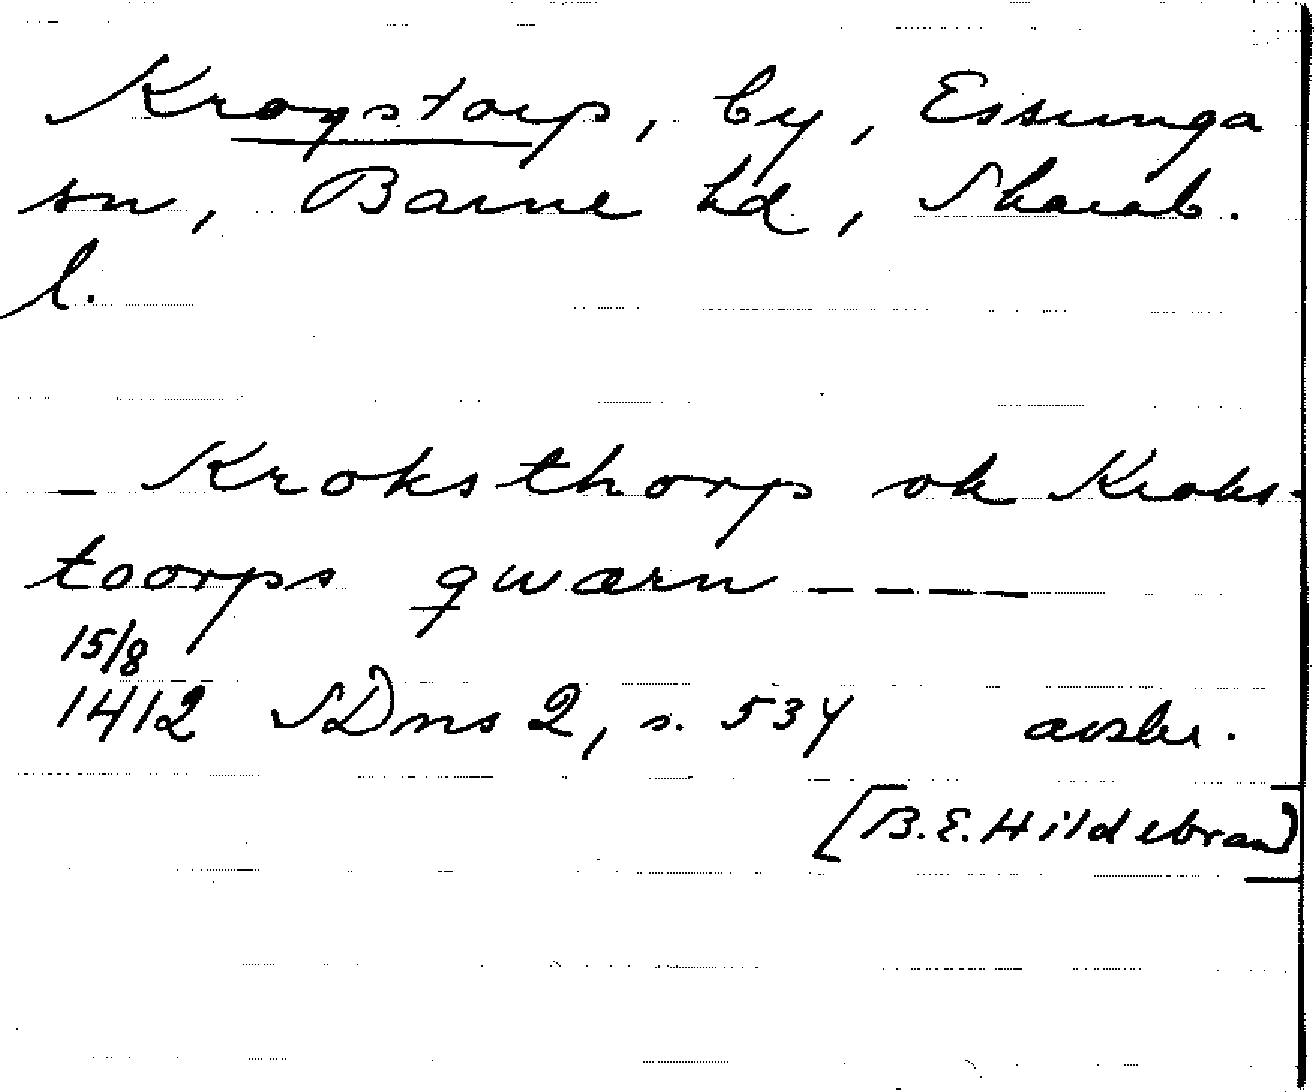 Krogstorp, by, Essunga
sn, Barne hd, Skarab.
l.
_ Kroksthorp ok Kroks-
toorps qwærn ----
15/8
1412 SDns 2, s. 534 avskr.
[B.E. Hildebrand]